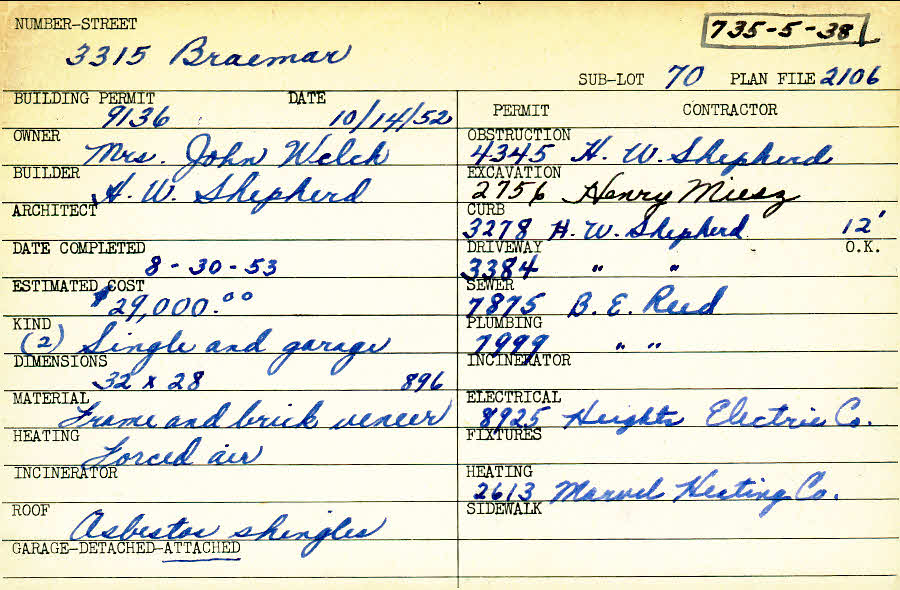 NUMBER-STREET
735-5-38
3315 Braemar
SUB-LOT 70 PLAN FILE 2106
BUILDING PERMIT DATE
9136 10/14/52
OWNER
Mrs. John Welch
BUILDER
H. W. Shepherd
ARCHITECT
DATE COMPLETED
8-30-53
ESTIMATED COST
$29,000.00
KIND
(2) Single and garage
DIMENSIONS
32 x 28 896
MATERIAL
Frame and brick veneer
HEATING
Forced air
INCINERATOR
ROOF
Asbestos shingles
GARAGE-DETACHED-ATTACHED
PERMIT CONTRACTOR
OBSTRUCTION
4345 H. W. Shepherd
EXCAVATION
2756 Henry Miesz
CURB
3278 H. W. Shepherd 12'
DRIVEWAY O.K.
3384 " "
SEWER
7875 B. E. Reed
PLUMBING
7999 " "
INCINERATOR
ELECTRICAL
8925 Heights Electric Co.
FIXTURES
HEATING
2613 Marvel Heating Co.
SIDEWALK